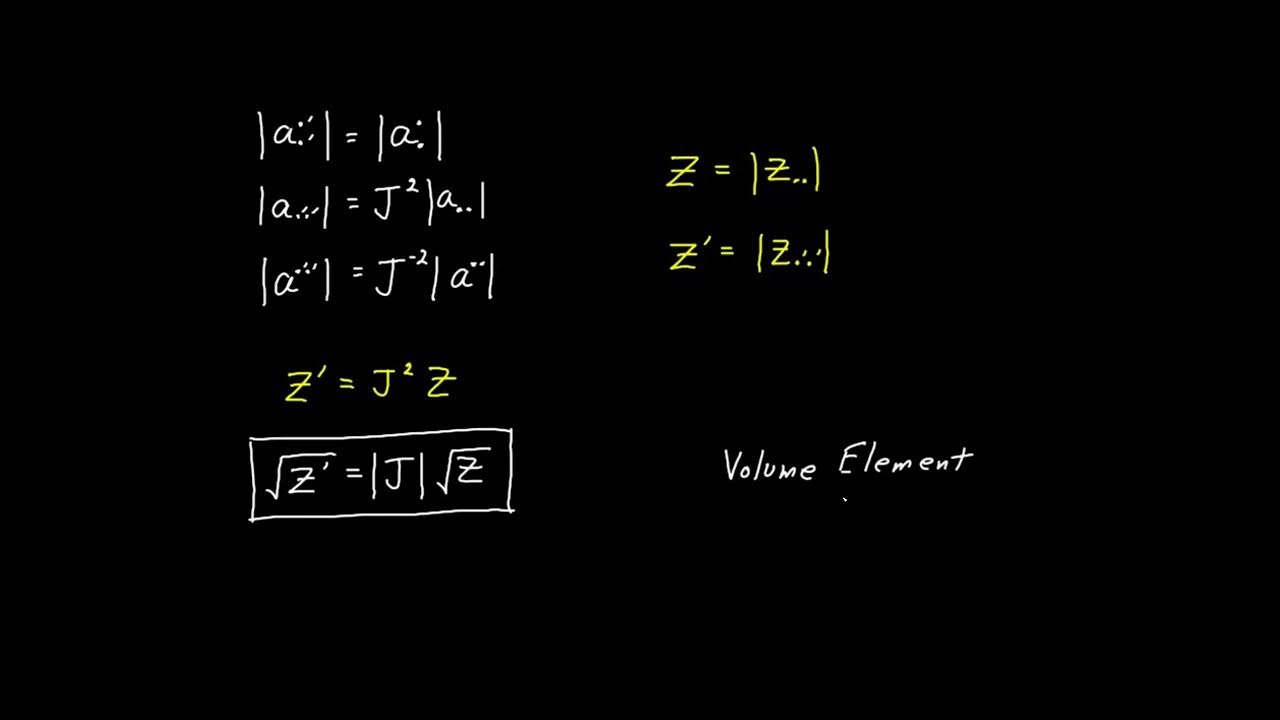 |a⁚′′| = |a⁚|
|a..′′| = J² |a..|
|a¨′′| = J⁻² |a¨|
Z = |Z..|
Z′ = |Z..′′|
Z′ = J² Z
√Z′ = |J| √Z
Volume Element